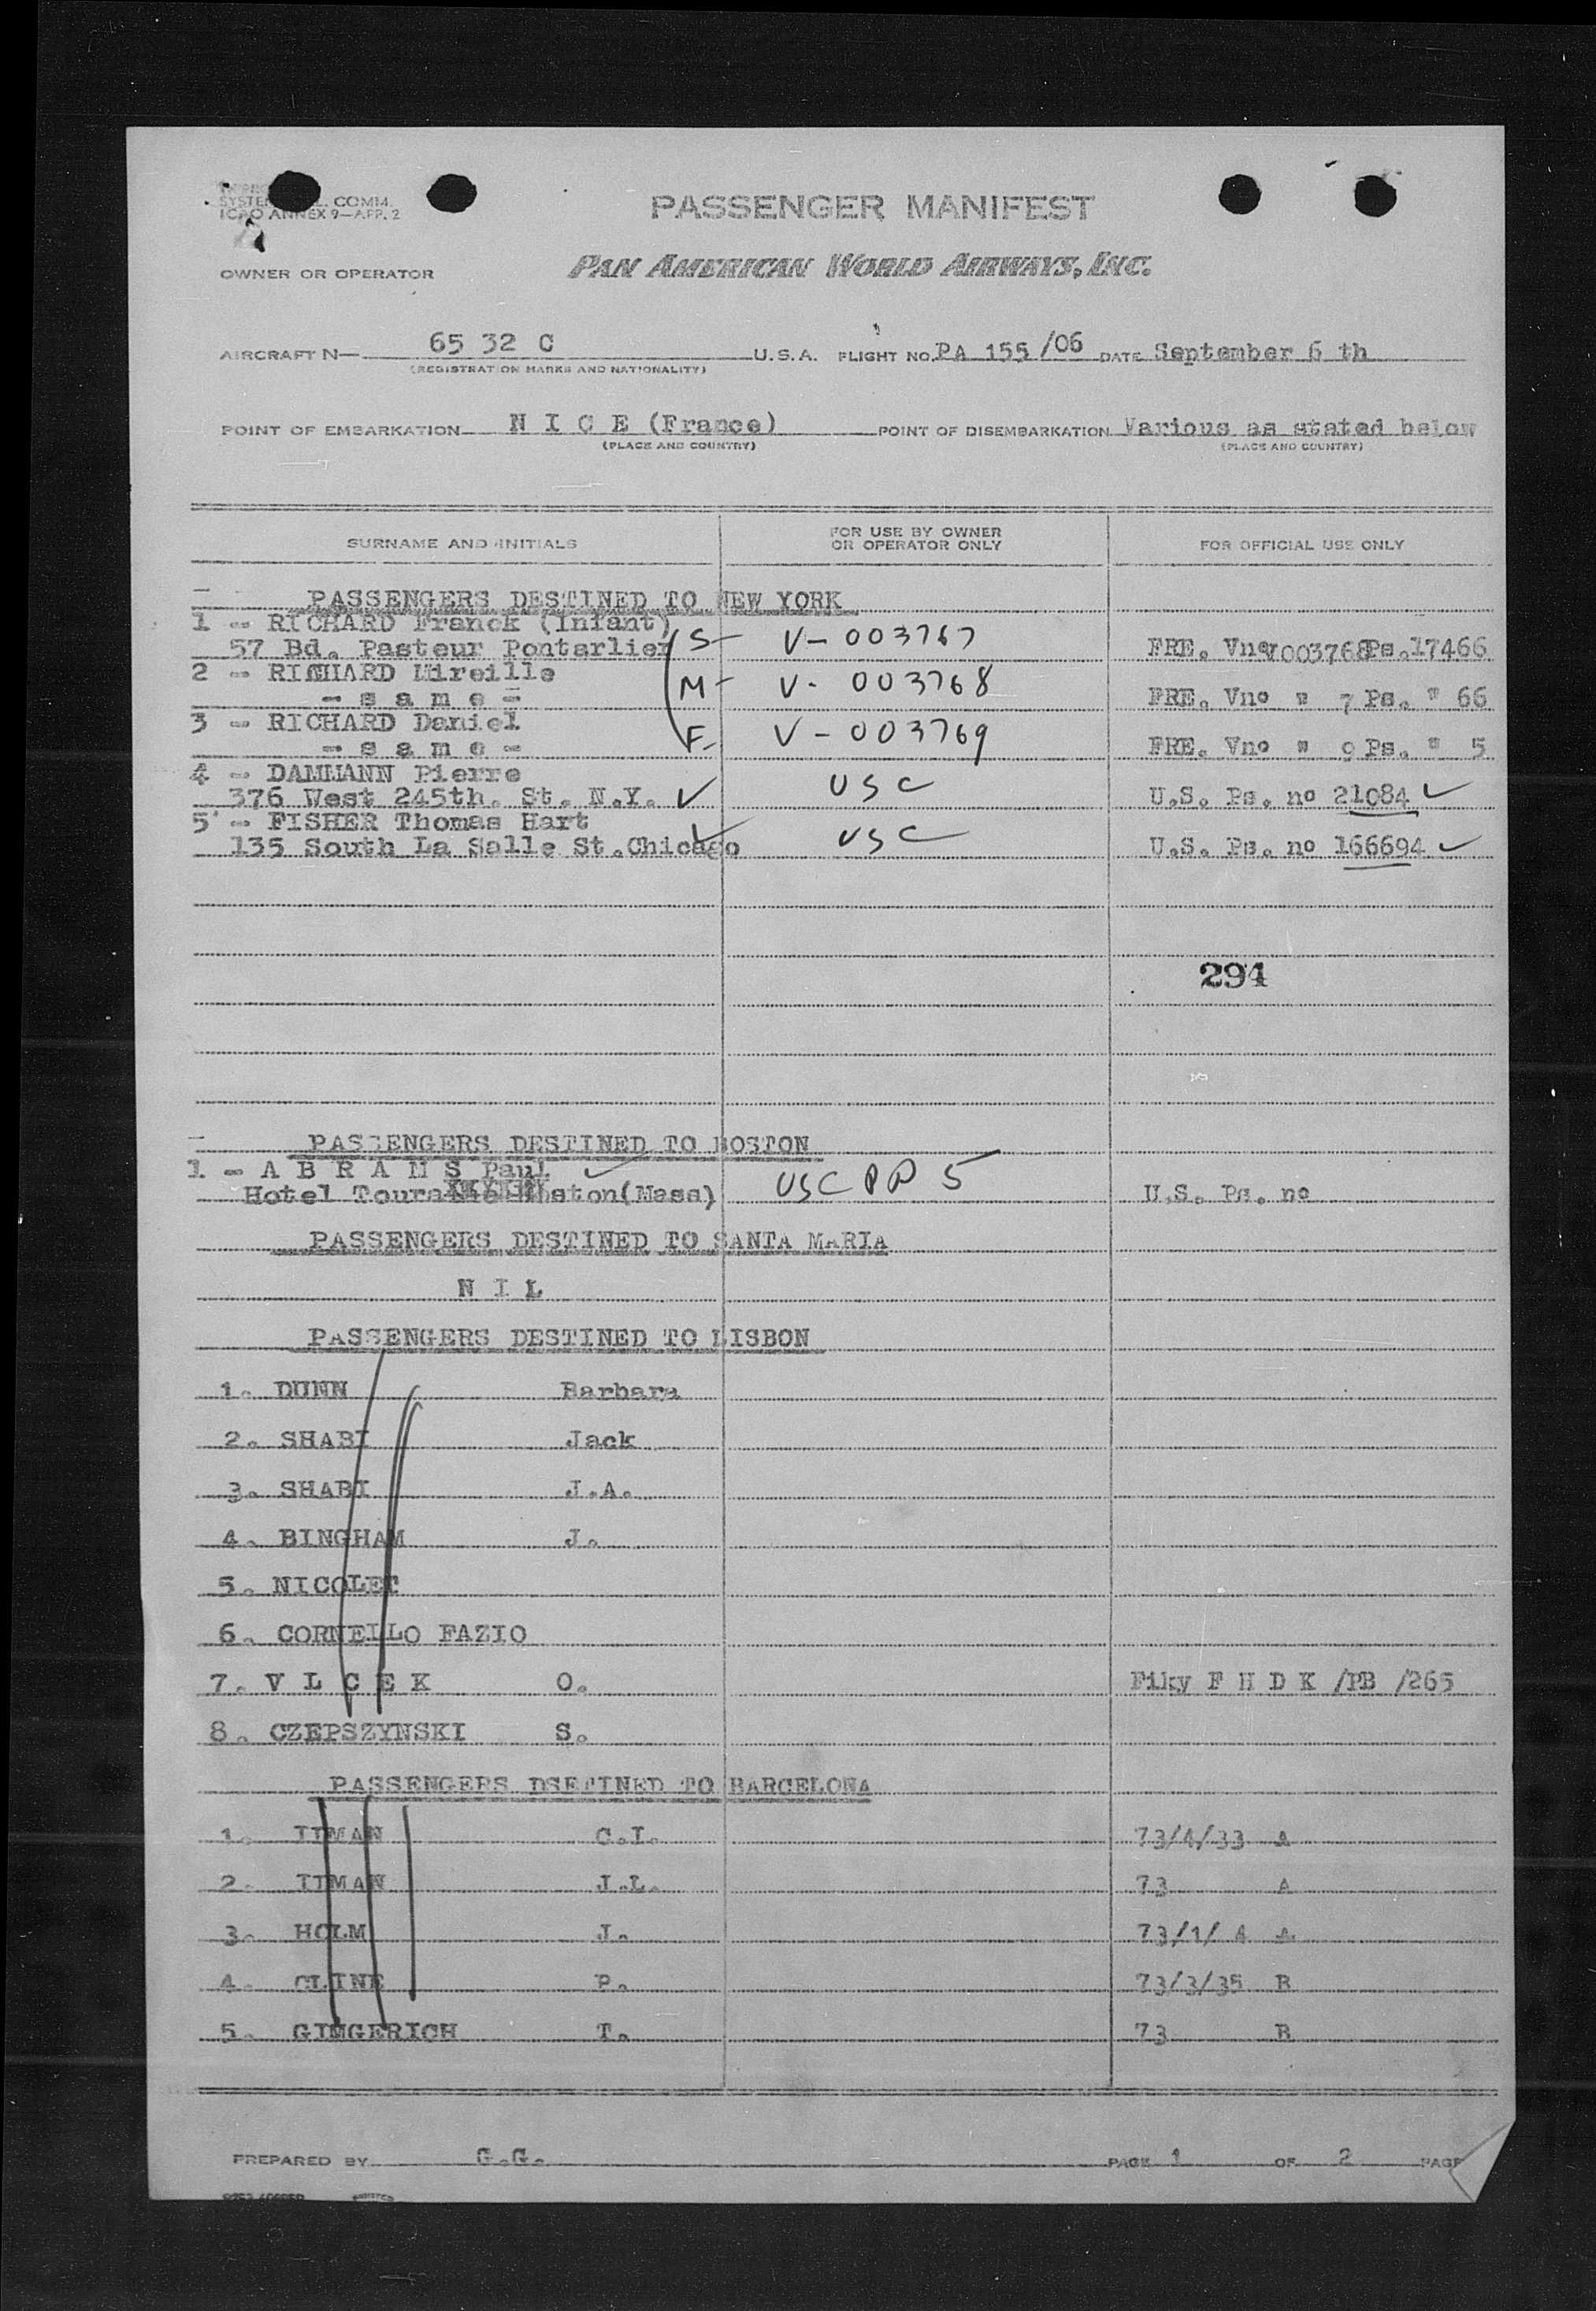 SYSTE L. COMM.
ICAO ANNEX 9—APP. 2
PASSENGER MANIFEST
OWNER OR OPERATOR PAN AMERICAN WORLD AIRWAYS, INC.
AIRCRAFT N— 65 32 C U.S.A. FLIGHT NO. PA 155/06 DATE September 6 th
(REGISTRATION MARKS AND NATIONALITY)
POINT OF EMBARKATION N I C E (France) POINT OF DISEMBARKATION Various as stated below
(PLACE AND COUNTRY) (PLACE AND COUNTRY)
SURNAME AND INITIALS FOR USE BY OWNER OR OPERATOR ONLY FOR OFFICIAL USE ONLY
PASSENGERS DESTINED TO NEW YORK
1 - RICHARD Franck (Infant)
57 Bd. Pasteur Pontarlier S- V-003767 FRE. Vno V003768 Ps.17466
2 - RICHARD Mireille
- s a m e - M- V- 003768 FRE. Vno " 7 Ps. " 66
3 - RICHARD Daniel
- s a m e - F- V-003769 FRE. Vno " 9 Ps. " 5
4 - DAMMANN Pierre
376 West 245th. St. N.Y. ✓ USC U.S. Ps. no 21084 ✓
5 - FISHER Thomas Hart
135 South La Salle St.Chicago ✓ USC U.S. Ps. no 166694 ✓
294
PASSENGERS DESTINED TO BOSTON
1 - A B R A M S Paul ✓
Hotel Touraine Boston(Mass) USC PP 5 U.S. Ps. no
PASSENGERS DESTINED TO SANTA MARIA
N I L
PASSENGERS DESTINED TO LISBON
1. DUNN Barbara
2. SHABI Jack
3. SHABI J.A.
4. BINGHAM J.
5. NICOLET
6. CORNELLO FAZIO
7. V L C E K O. Fiky F H D K /PB /265
8. CZEPSZYNSKI S.
PASSENGERS DSETINED TO BARCELONA
1. C.I. 73/4/33 A
2. J.L. 73 A
3. HOLM J. 73/1/ 4 A
4. CLINE P. 73/3/35 B
5. GINGERICH T. 73 B
PREPARED BY G.G. PAGE 1 OF 2 PAGE